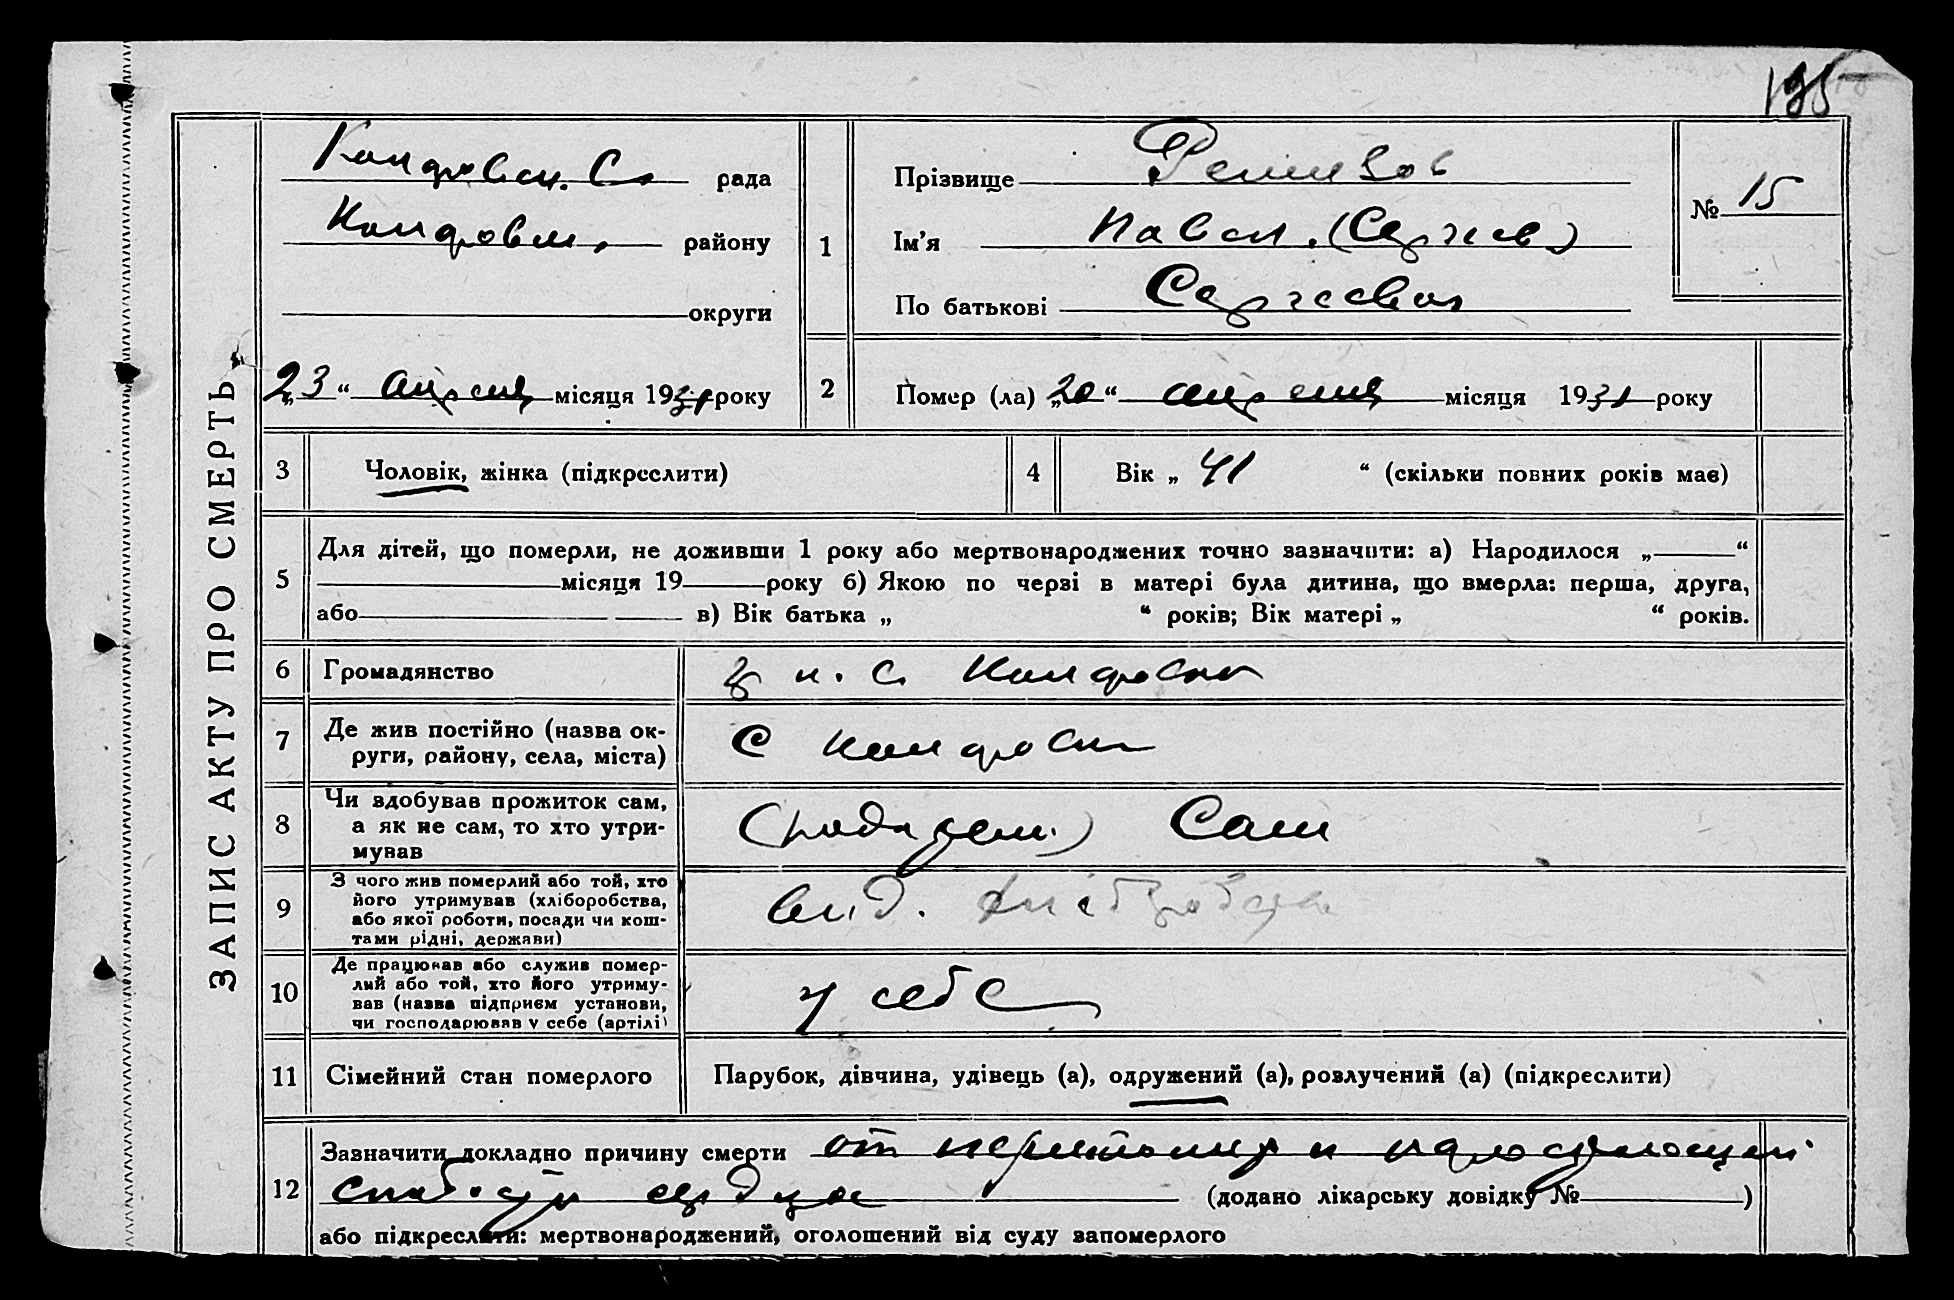 195
ЗАПИС АКТУ ПРО СМЕРТЬ
рада
району
округи
„23“ апреля місяця 1931 року
1
Прізвище
Ім’я Павел. (Сергеев)
По батькові Сергеевич
№ 15
2
Помер (ла) „20“ апреля місяця 1931 року
3
Чоловік, жінка (підкреслити)
4
Вік „ 41 “ (скільки повних років має)
5
Для дітей, що померли, не доживши 1 року або мертвонароджених точно зазначити: а) Народилося „ “
місяця 19 року б) Якою по черзі в матері була дитина, що вмерла: перша, друга,
або в) Вік батька „ “ років; Вік матері „ “ років.
6
Громадянство
7
Де жив постійно (назва ок-
руги, району, села, міста)
С
8
Чи здобував прожиток сам,
а як не сам, то хто утри-
мував
Сам
9
З чого жив померлий або той, хто
його утримував (хліборобства,
або якої роботи, посади чи кош-
тами рідні, держави)
10
Де працював або служив помер-
лий або той, хто його утриму-
вав (назва підприєм установи,
чи господарював у себе (артілі)
у себе
11
Сімейний стан померлого
Парубок, дівчина, удівець (а), одружений (а), розлучений (а) (підкреслити)
12
Зазначити докладно причину смерти от перитонита и
сердца (додано лікарську довідку № )
або підкреслити: мертвонароджений, оголошений від суду запомерлого